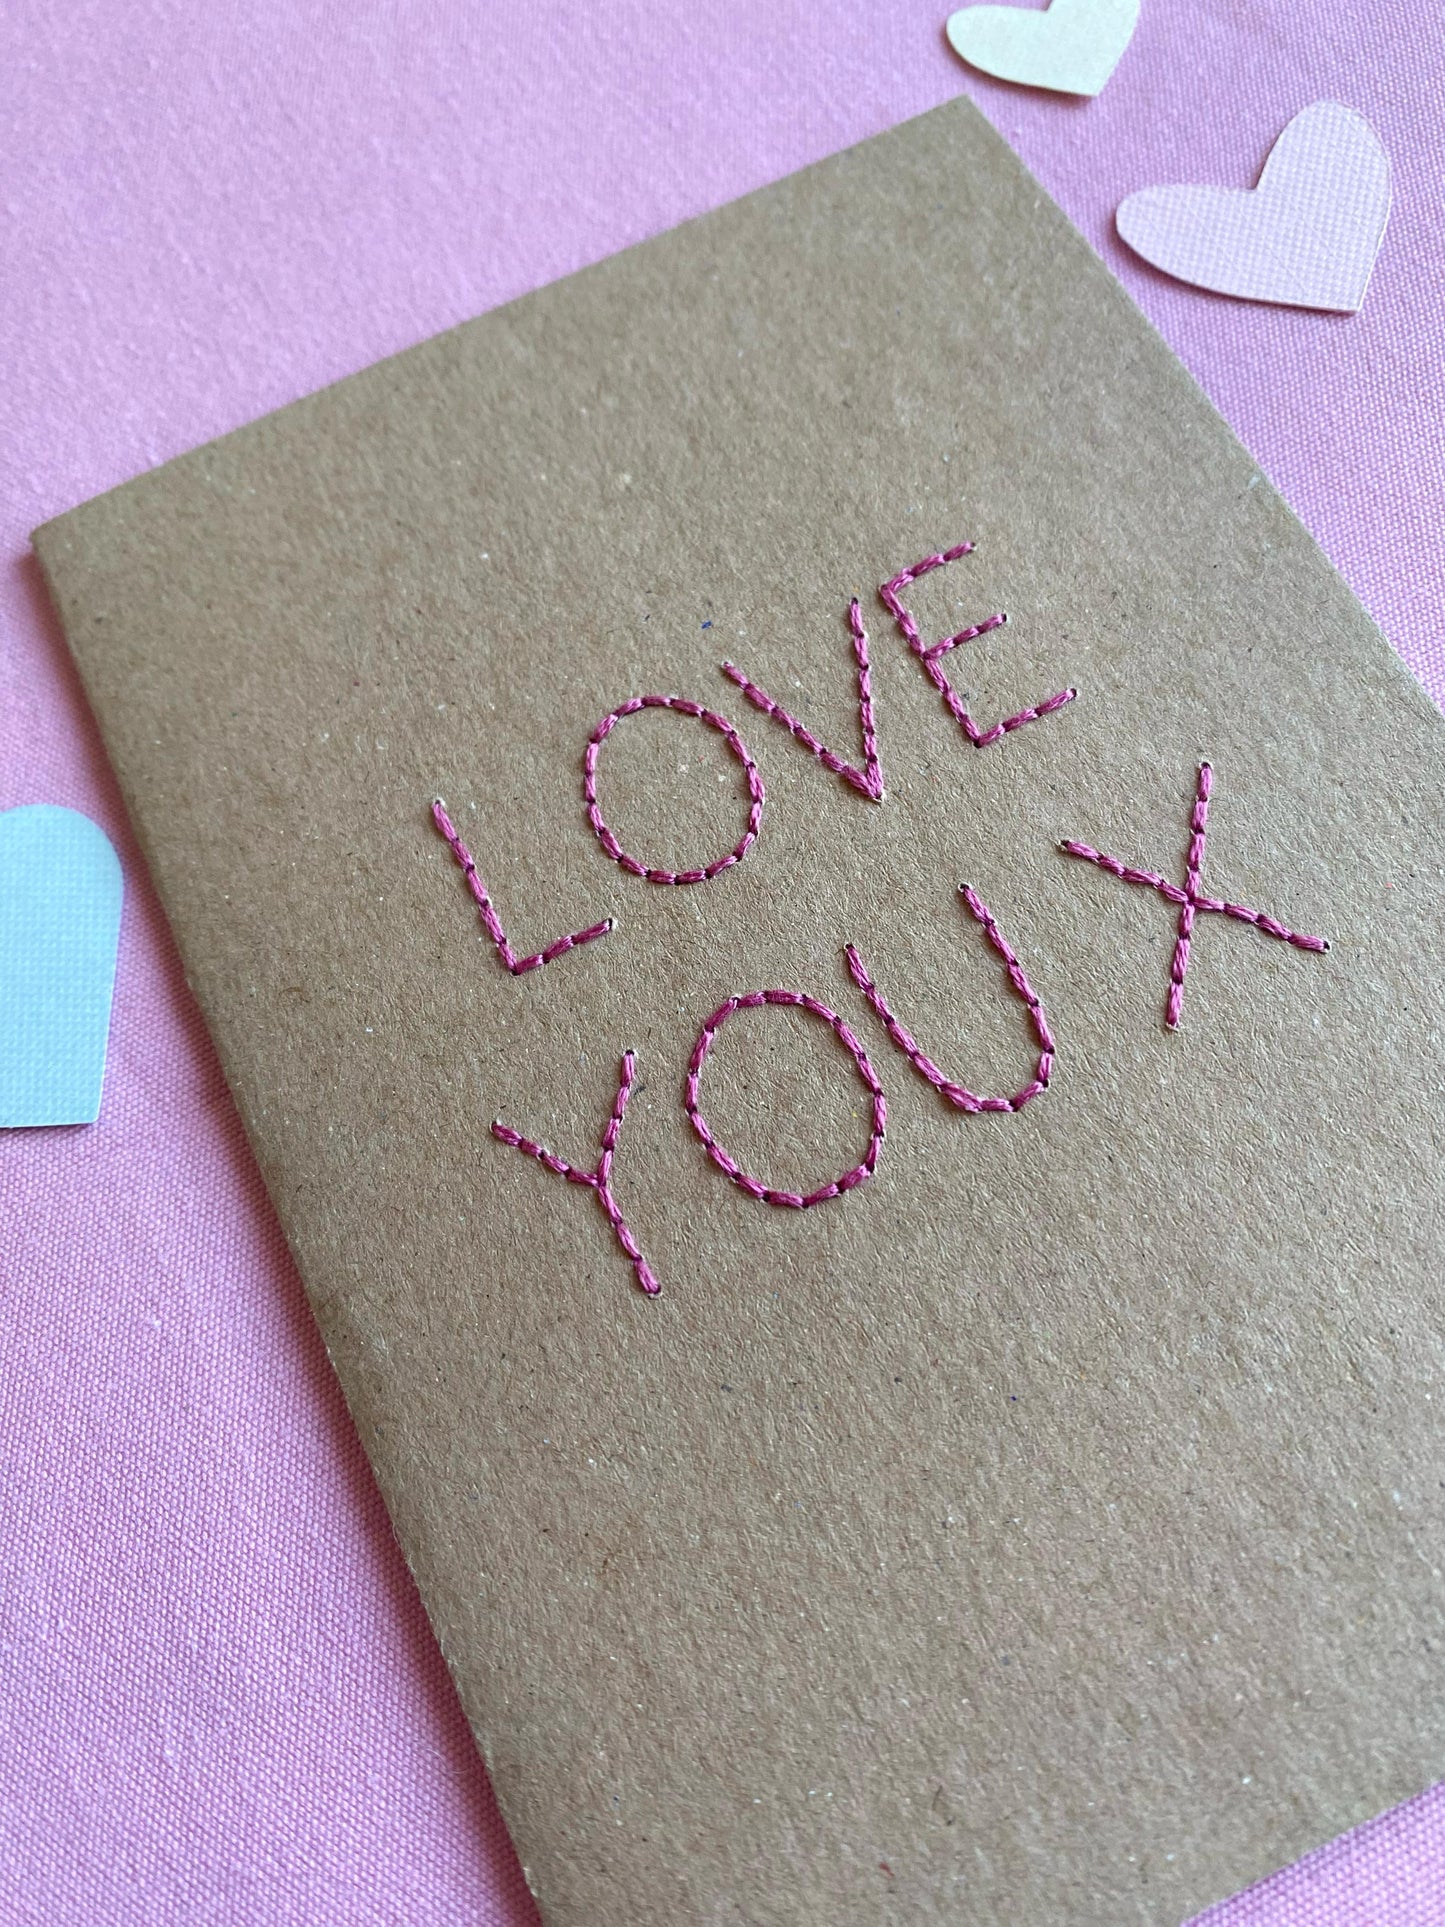 LOVE
YOU X